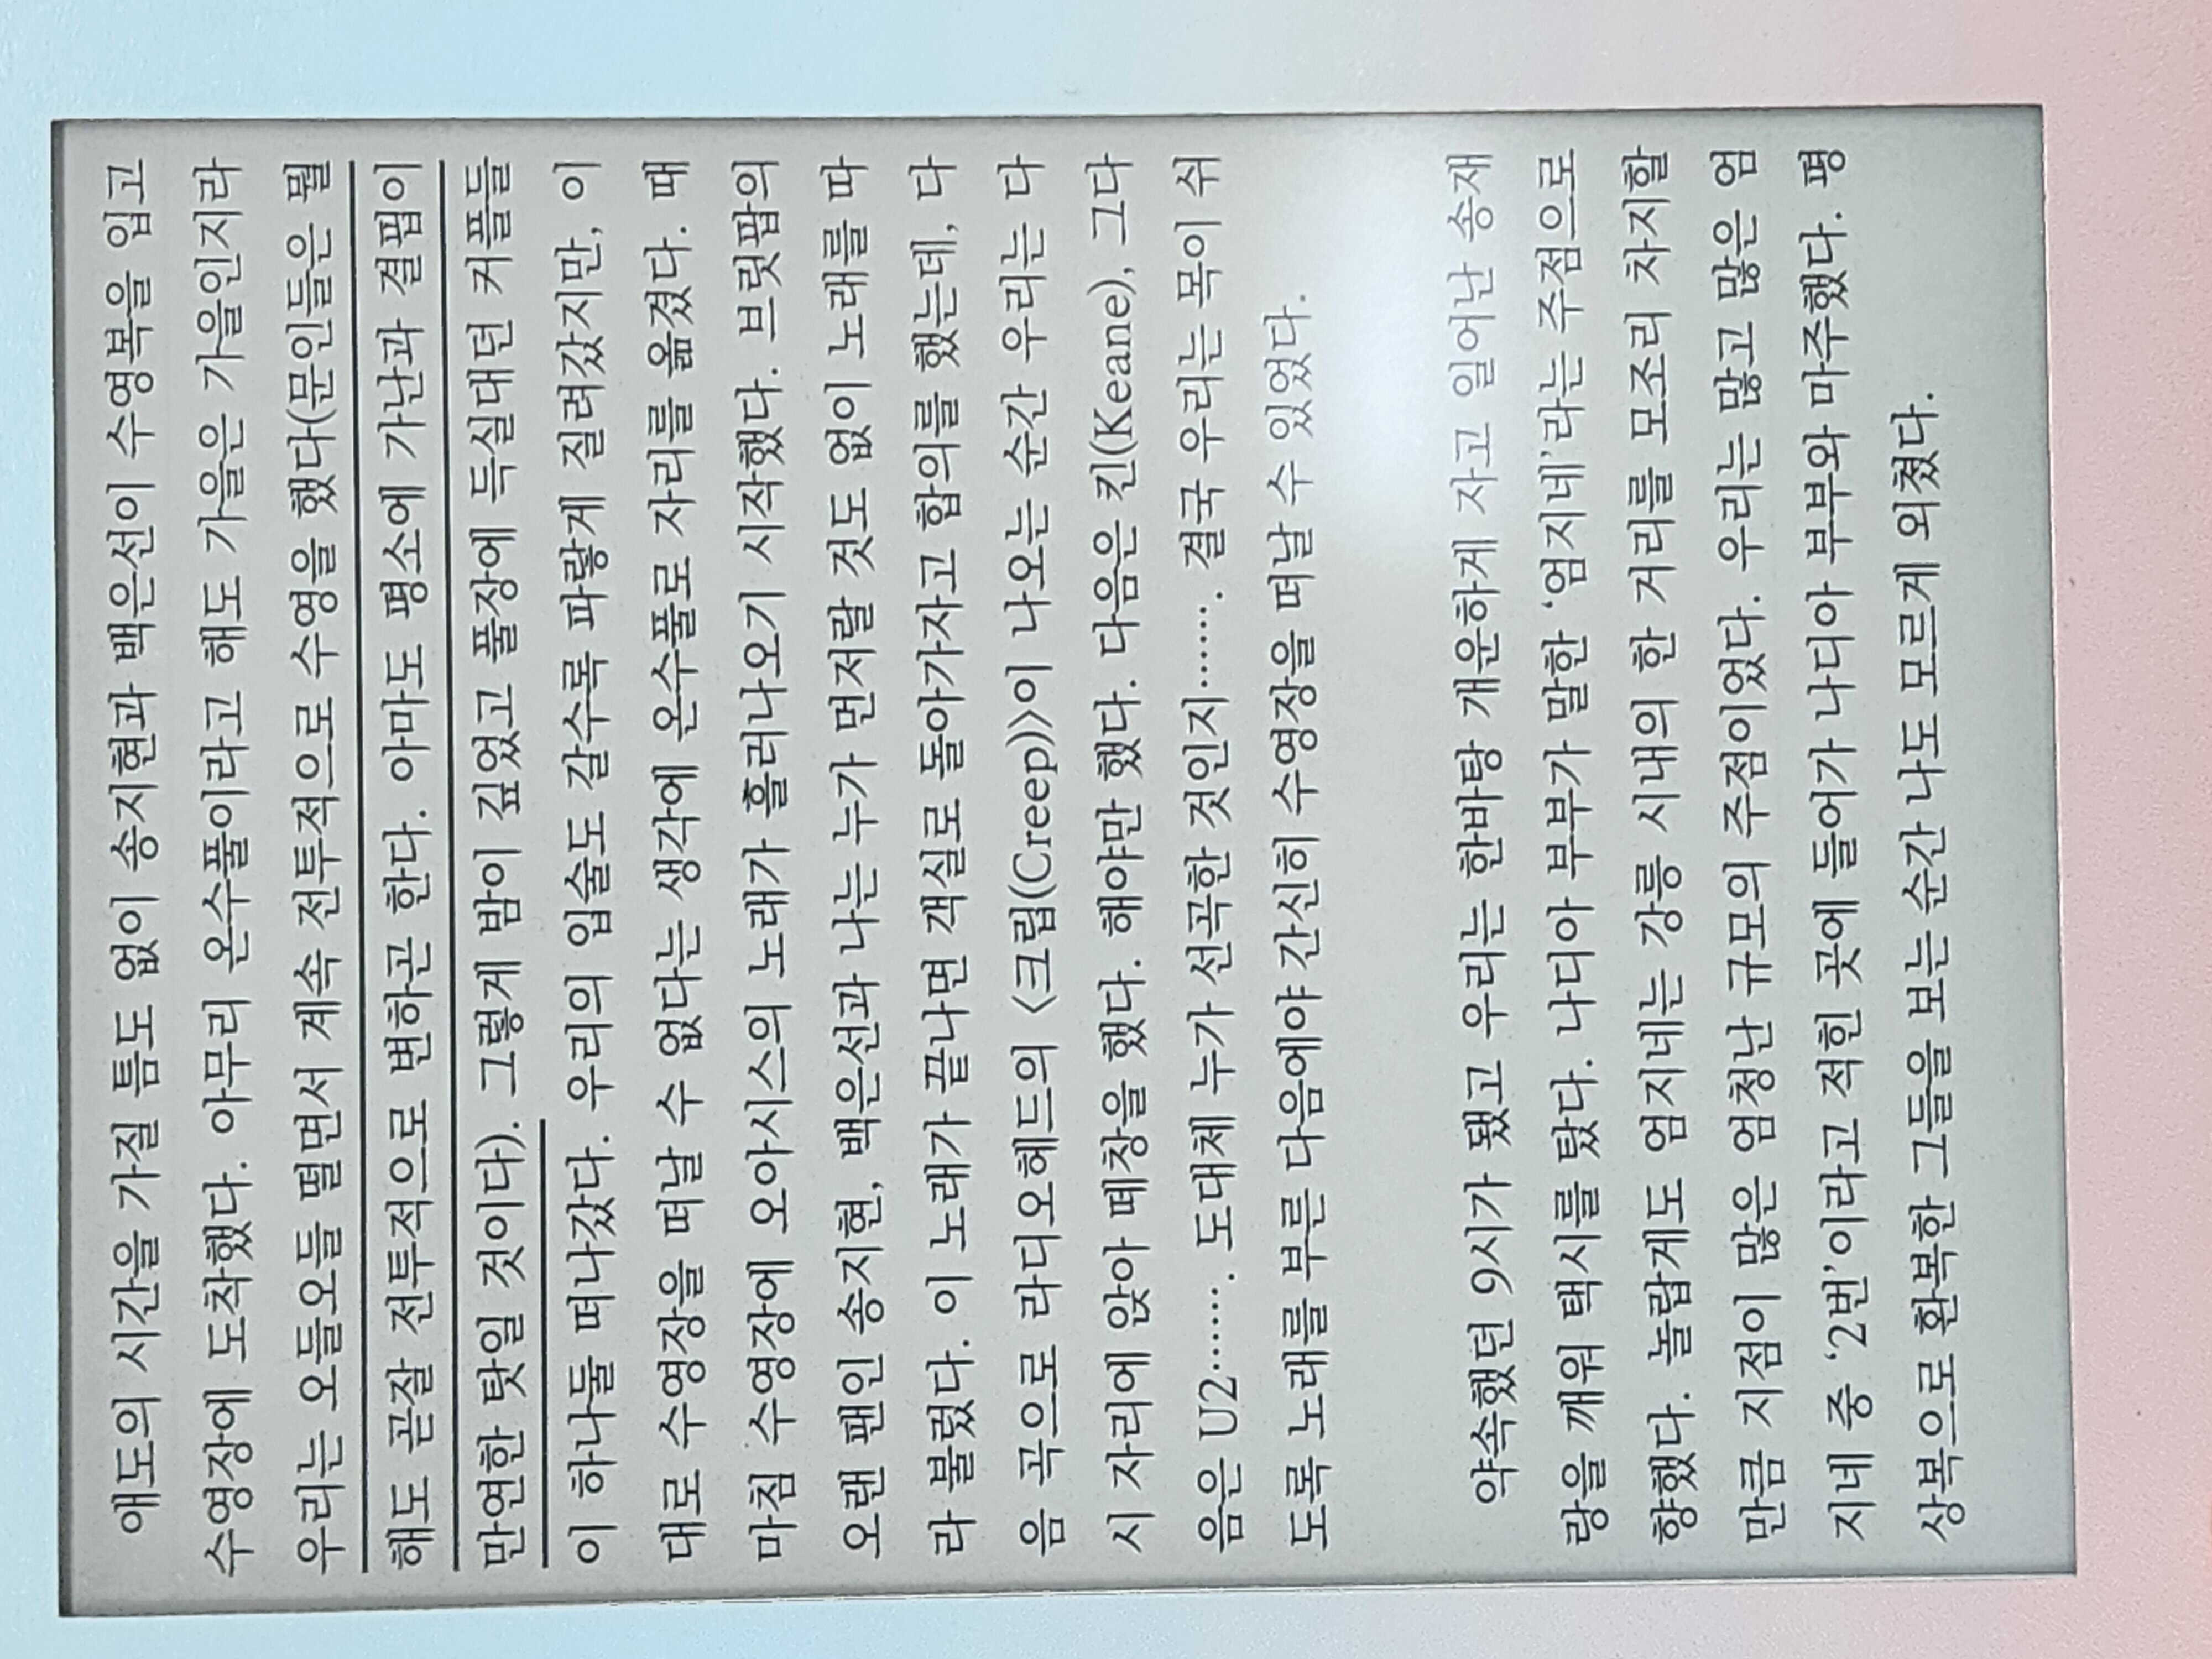 애도의 시간을 가질 틈도 없이 송지현과 백은선이 수영복을 입고
수영장에 도착했다. 아무리 온수풀이라고 해도 가을은 가을인지라
우리는 오들오들 떨면서 계속 전투적으로 수영을 했다(문인들은 뭘
해도 곧잘 전투적으로 변하곤 한다. 아마도 평소에 가난과 결핍이
만연한 탓일 것이다). 그렇게 밤이 깊었고 풀장에 득실대던 커플들
이 하나둘 떠나갔다. 우리의 입술도 갈수록 파랗게 질려갔지만, 이
대로 수영장을 떠날 수 없다는 생각에 온수풀로 자리를 옮겼다. 때
마침 수영장에 오아시스의 노래가 흘러나오기 시작했다. 브릿팝의
오랜 팬인 송지현, 백은선과 나는 누가 먼저랄 것도 없이 노래를 따
라 불렀다. 이 노래가 끝나면 객실로 돌아가자고 합의를 했는데, 다
음 곡으로 라디오헤드의 〈크립(Creep)〉이 나오는 순간 우리는 다
시 자리에 앉아 떼창을 했다. 해야만 했다. 다음은 킨(Keane), 그다
음은 U2……. 도대체 누가 선곡한 것인지……. 결국 우리는 목이 쉬
도록 노래를 부른 다음에야 간신히 수영장을 떠날 수 있었다.
약속했던 9시가 됐고 우리는 한바탕 개운하게 자고 일어난 송재
랑을 깨워 택시를 탔다. 나디아 부부가 말한 ‘엄지네’라는 주점으로
향했다. 놀랍게도 엄지네는 강릉 시내의 한 거리를 모조리 차지할
만큼 지점이 많은 엄청난 규모의 주점이었다. 우리는 많고 많은 엄
지네 중 ‘2번’이라고 적힌 곳에 들어가 나디아 부부와 마주했다. 평
상복으로 환복한 그들을 보는 순간 나도 모르게 외쳤다.